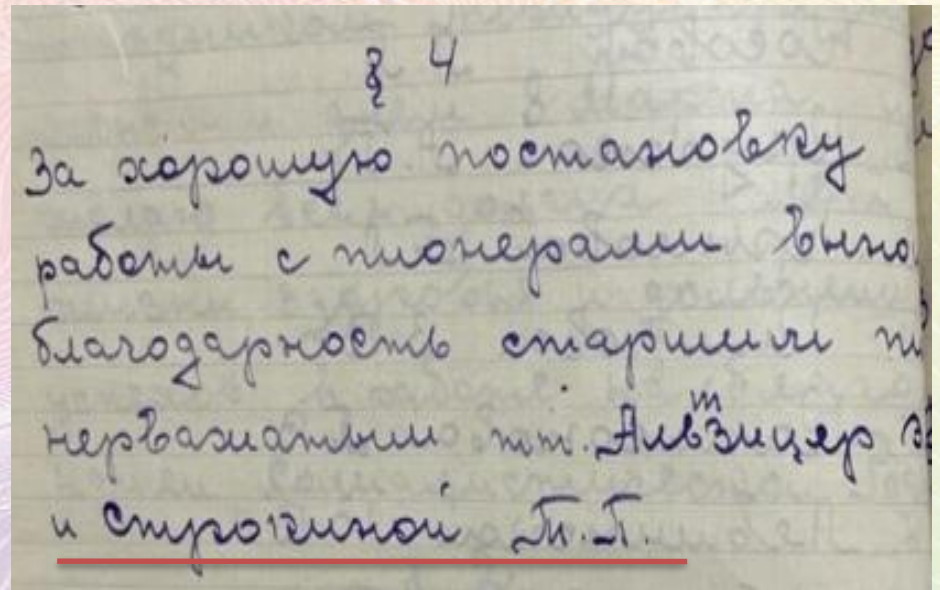 § 4
За хорошую постановку
работы с пионерами выно
благодарность старшим пи
нервожатым тт. Альтзицер Э
и Строкиной Т.П.